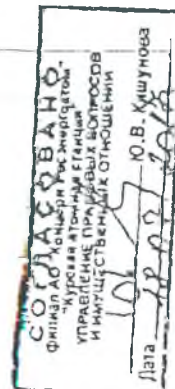 СОГЛАСОВАНО
Филиал АО "Концерн Росэнергоатом"
"Курская атомная станция"
УПРАВЛЕНИЕ ПРАВОВЫХ ВОПРОСОВ
И ИМУЩЕСТВЕННЫХ ОТНОШЕНИЙ
Ю.В. Кушунова
Дата